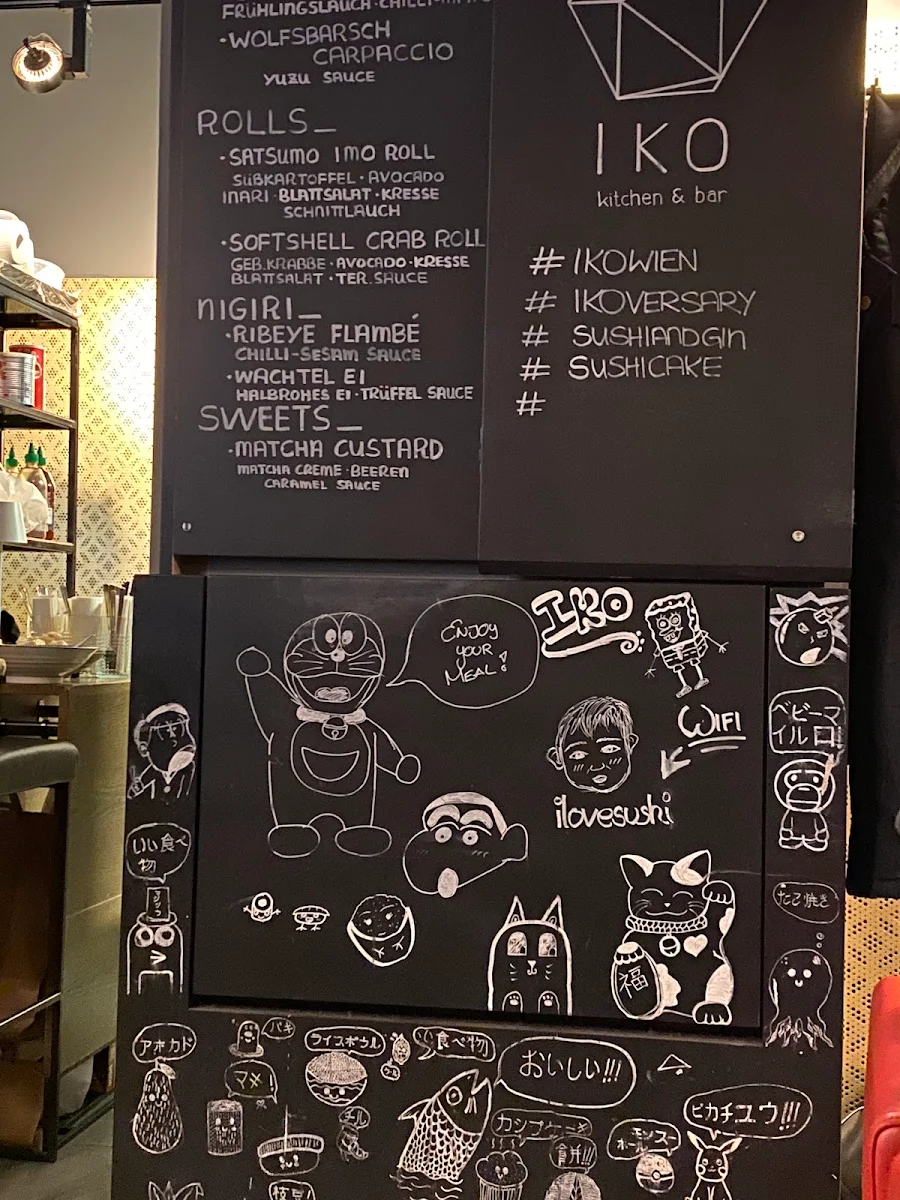 FRÜHLINGSLAUCH·CHILLI-MAYO
·WOLFSBARSCH
CARPACCIO
YUZU SAUCE
ROLLS_
·SATSUMO IMO ROLL
SÜßKARTOFFEL·AVOCADO
INARI·BLATTSALAT·KRESSE
SCHNITTLAUCH
·SOFTSHELL CRAB ROLL
GEB.KRABBE·AVOCADO·KRESSE
BLATTSALAT·TER.SAUCE
NIGIRI_
·RIBEYE FLAMBÉ
CHILLI-SESAM SAUCE
·WACHTEL EI
HALBROHES EI·TRÜFFEL SAUCE
SWEETS_
·MATCHA CUSTARD
MATCHA CREME·BEEREN
CARAMEL SAUCE
IKO
kitchen & bar
# IKOWIEN
# IKOVERSARY
# SUSHIANDGIN
# SUSHICAKE
#
ENJOY
YOUR
MEAL!
IKO
WIFI
ilovesushi
福
いい食べ
物
ベビーマ
イルロ
たこ焼き
アボカド
ライスボウル
食べ物
おいしい!!!
マメ!
チリ
カップケーキ
ピカチュウ!!!
枝豆!